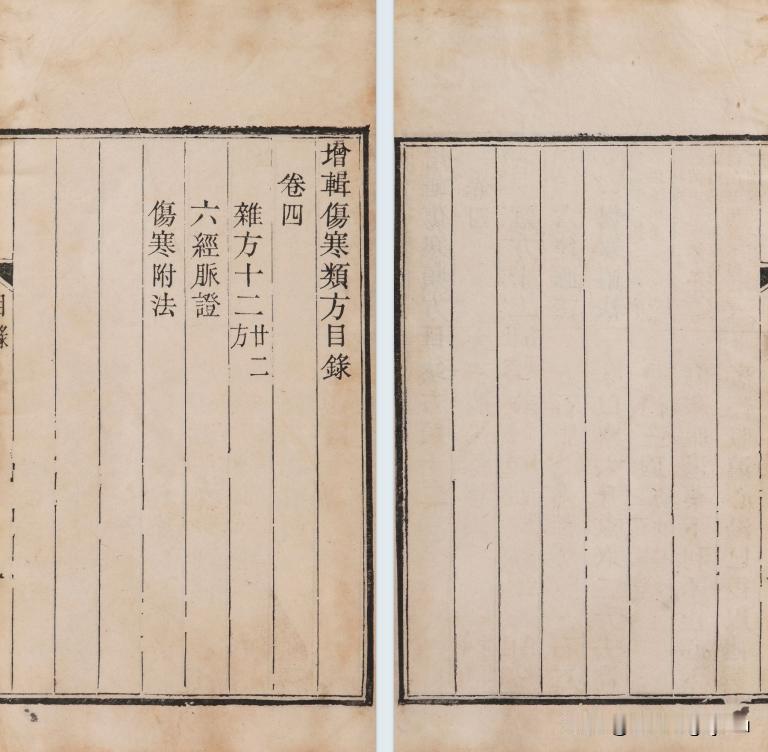 增輯傷寒類方目錄
卷四
雜方十二 廿二方
六經脈證
傷寒附法
目錄